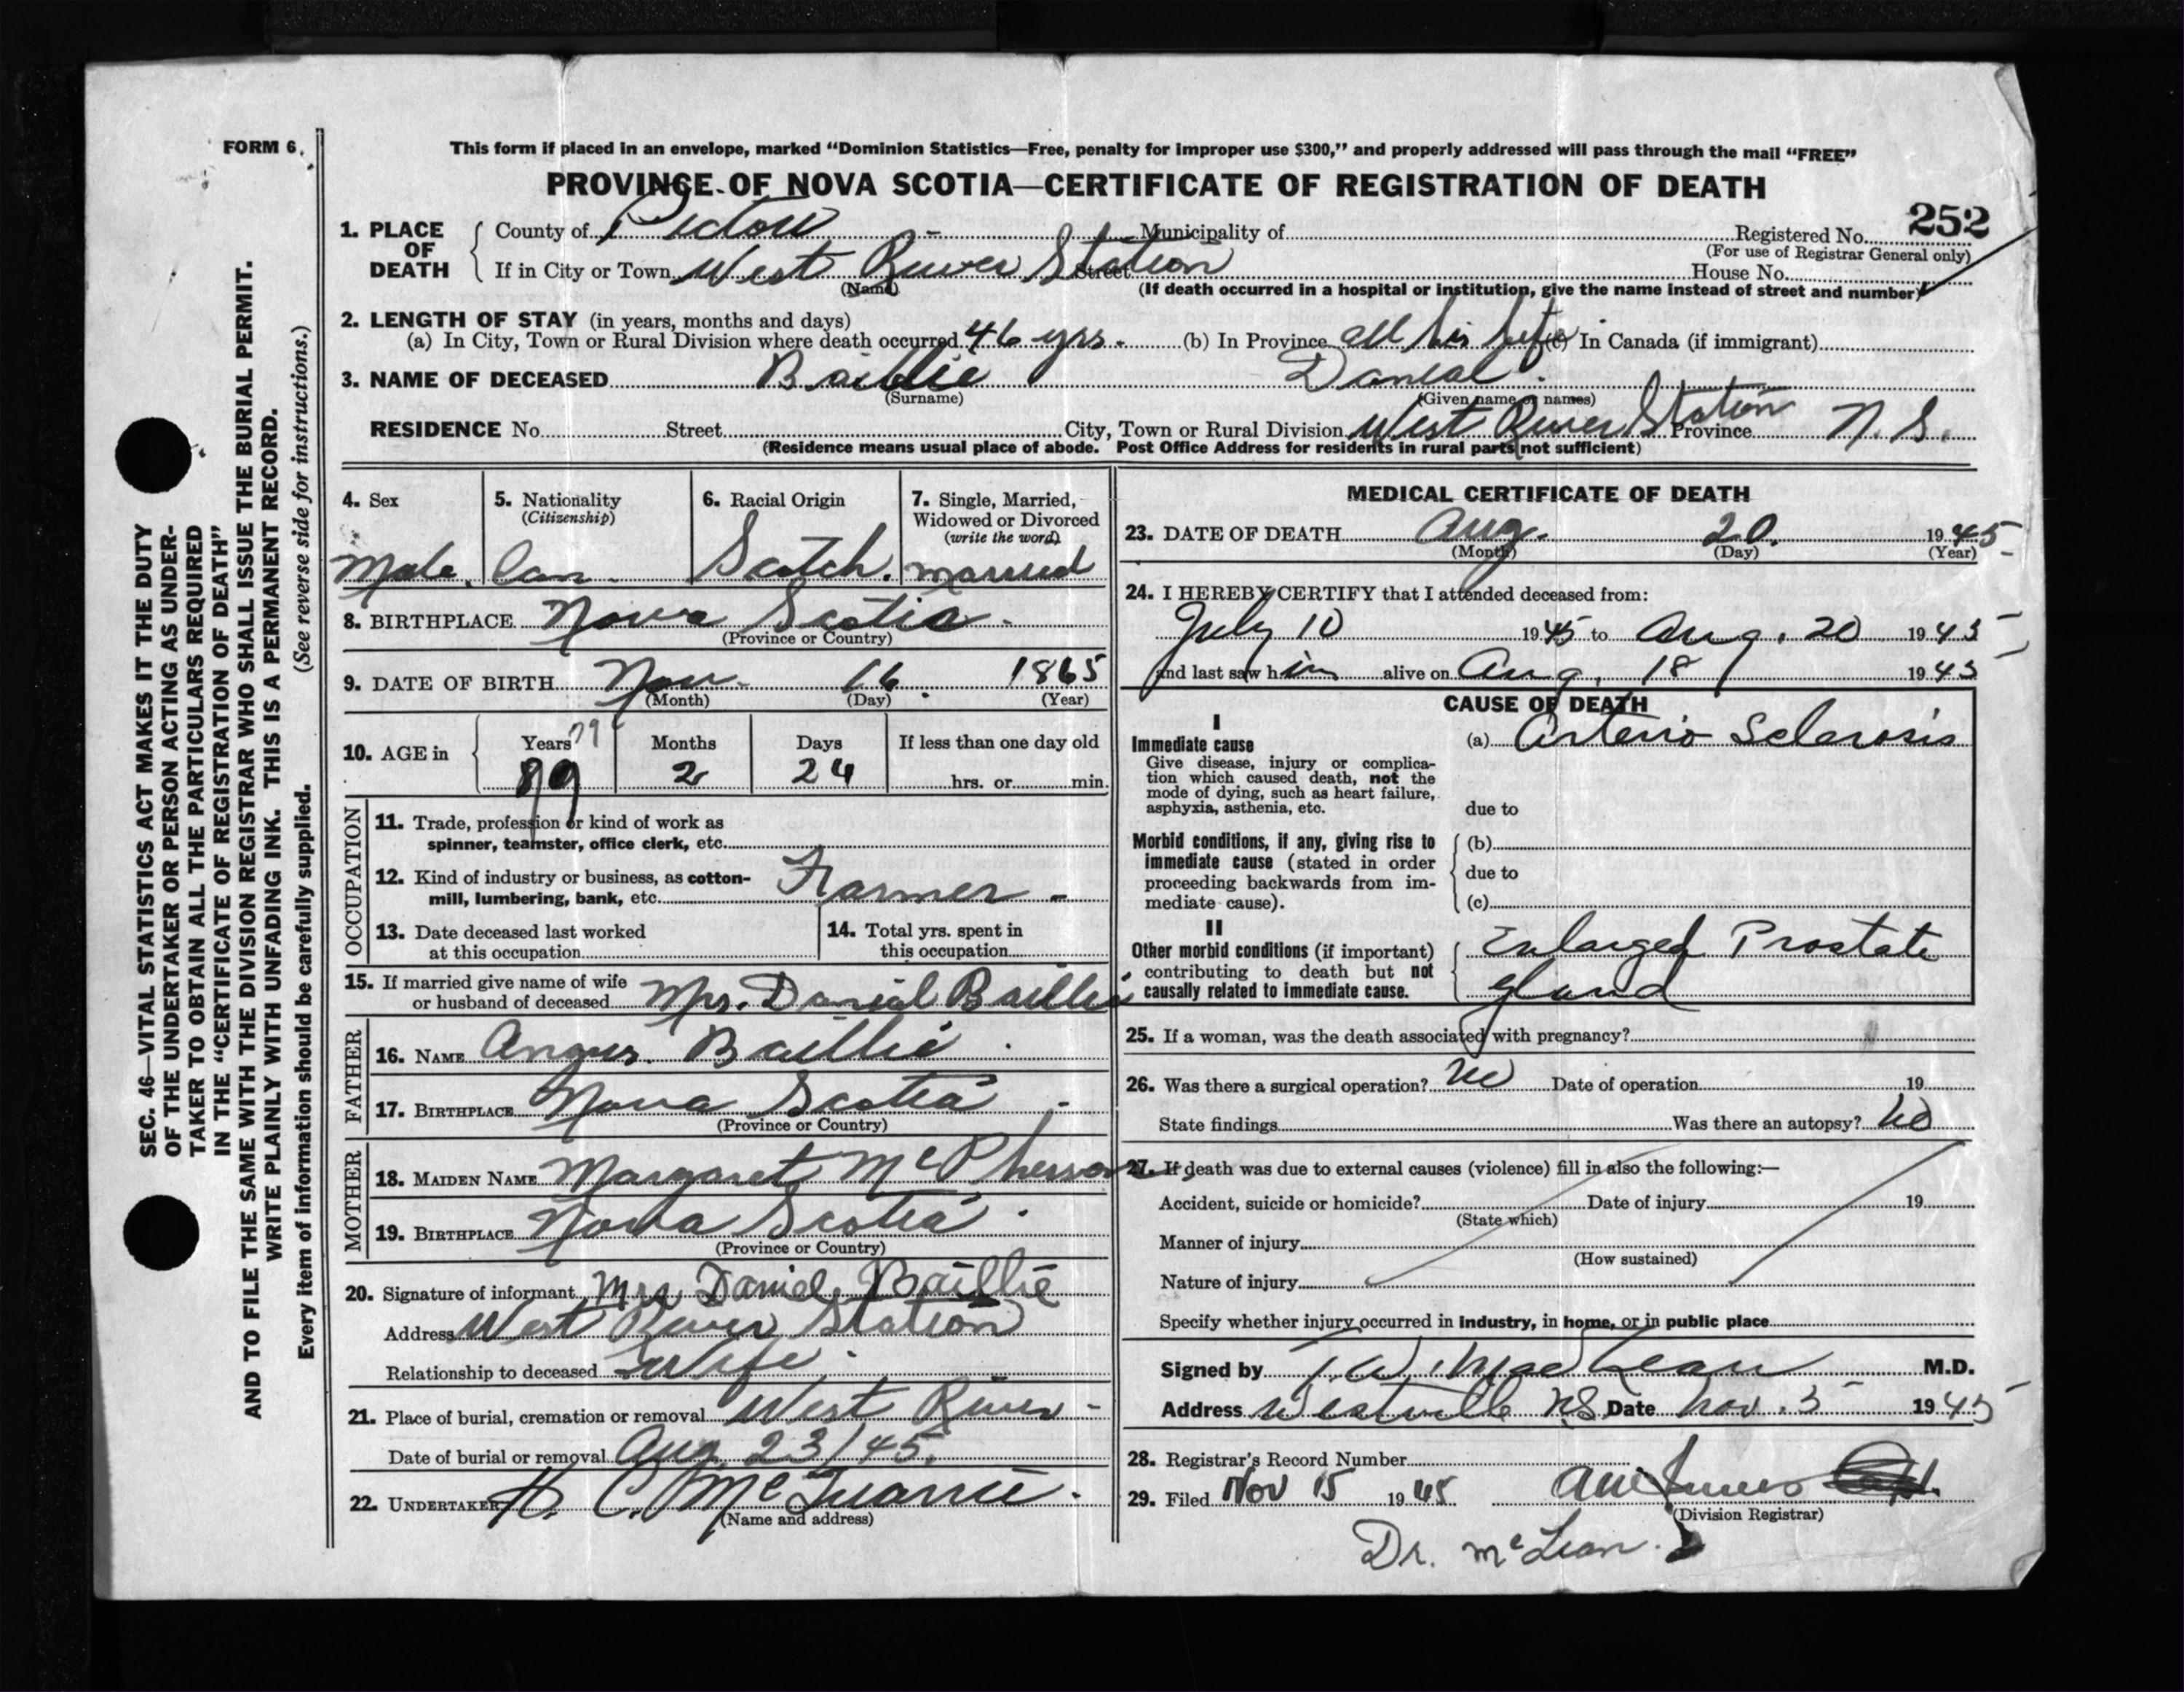 FORM 6.
SEC. 46—VITAL STATISTICS ACT MAKES IT THE DUTY
OF THE UNDERTAKER OR PERSON ACTING AS UNDER-
TAKER TO OBTAIN ALL THE PARTICULARS REQUIRED
IN THE "CERTIFICATE OF REGISTRATION OF DEATH"
AND TO FILE THE SAME WITH THE DIVISION REGISTRAR WHO SHALL ISSUE THE BURIAL PERMIT.
WRITE PLAINLY WITH UNFADING INK. THIS IS A PERMANENT RECORD.
Every item of information should be carefully supplied. (See reverse side for instructions.)
This form if placed in an envelope, marked "Dominion Statistics—Free, penalty for improper use $300," and properly addressed will pass through the mail "FREE"
PROVINCE OF NOVA SCOTIA—CERTIFICATE OF REGISTRATION OF DEATH
1. PLACE OF DEATH
County of Pictou Municipality of Registered No. 252
(For use of Registrar General only)
If in City or Town West River Station Street House No.
(Name) (If death occurred in a hospital or institution, give the name instead of street and number)
2. LENGTH OF STAY (in years, months and days)
(a) In City, Town or Rural Division where death occurred 46 yrs. (b) In Province all his life (c) In Canada (if immigrant)
3. NAME OF DECEASED Baillie Danial
(Surname) (Given name or names)
RESIDENCE No. Street City, Town or Rural Division West River Station Province N. S.
(Residence means usual place of abode. Post Office Address for residents in rural parts not sufficient)
4. Sex 5. Nationality 6. Racial Origin 7. Single, Married,
(Citizenship) Widowed or Divorced
(write the word)
Male. Can. Scotch. married
8. BIRTHPLACE Nova Scotia.
(Province or Country)
9. DATE OF BIRTH Nov. 16. 1865
(Month) (Day) (Year)
10. AGE in Years 79 Months Days If less than one day old
79 2 24 hrs. or min.
OCCUPATION
11. Trade, profession or kind of work as
spinner, teamster, office clerk, etc.
12. Kind of industry or business, as cotton-
mill, lumbering, bank, etc. Farmer
13. Date deceased last worked
at this occupation
14. Total yrs. spent in
this occupation
15. If married give name of wife
or husband of deceased Mrs. Danial Baillie
FATHER
16. NAME Angus Baillie
17. BIRTHPLACE Nova Scotia
(Province or Country)
MOTHER
18. MAIDEN NAME Margaret McPherson
19. BIRTHPLACE Nova Scotia
(Province or Country)
20. Signature of informant Mrs Daniel Baillie
Address West River Station
Relationship to deceased Wife.
21. Place of burial, cremation or removal West River
Date of burial or removal Aug. 23/45.
22. UNDERTAKER H. C. McQuarrie.
(Name and address)
MEDICAL CERTIFICATE OF DEATH
23. DATE OF DEATH Aug. 20. 1945
(Month) (Day) (Year)
24. I HEREBY CERTIFY that I attended deceased from:
July 10 1945 to Aug. 20 1945
and last saw him alive on Aug. 18 1945
CAUSE OF DEATH
I
Immediate cause (a) Arterio Sclerosis
Give disease, injury or complica-
tion which caused death, not the
mode of dying, such as heart failure,
asphyxia, asthenia, etc. due to
Morbid conditions, if any, giving rise to (b)
immediate cause (stated in order
proceeding backwards from im- due to
mediate cause). (c)
II
Other morbid conditions (if important) Enlarged Prostate
contributing to death but not
causally related to immediate cause. gland
25. If a woman, was the death associated with pregnancy?
26. Was there a surgical operation? no Date of operation 19
State findings Was there an autopsy? no
27. If death was due to external causes (violence) fill in also the following:—
Accident, suicide or homicide? Date of injury 19
(State which)
Manner of injury
(How sustained)
Nature of injury
Specify whether injury occurred in industry, in home, or in public place
Signed by T. W. MacLean M.D.
Address Westville N.S. Date Nov. 5 1945
28. Registrar's Record Number
29. Filed Nov 15 1945
(Division Registrar)
Dr. McLean.